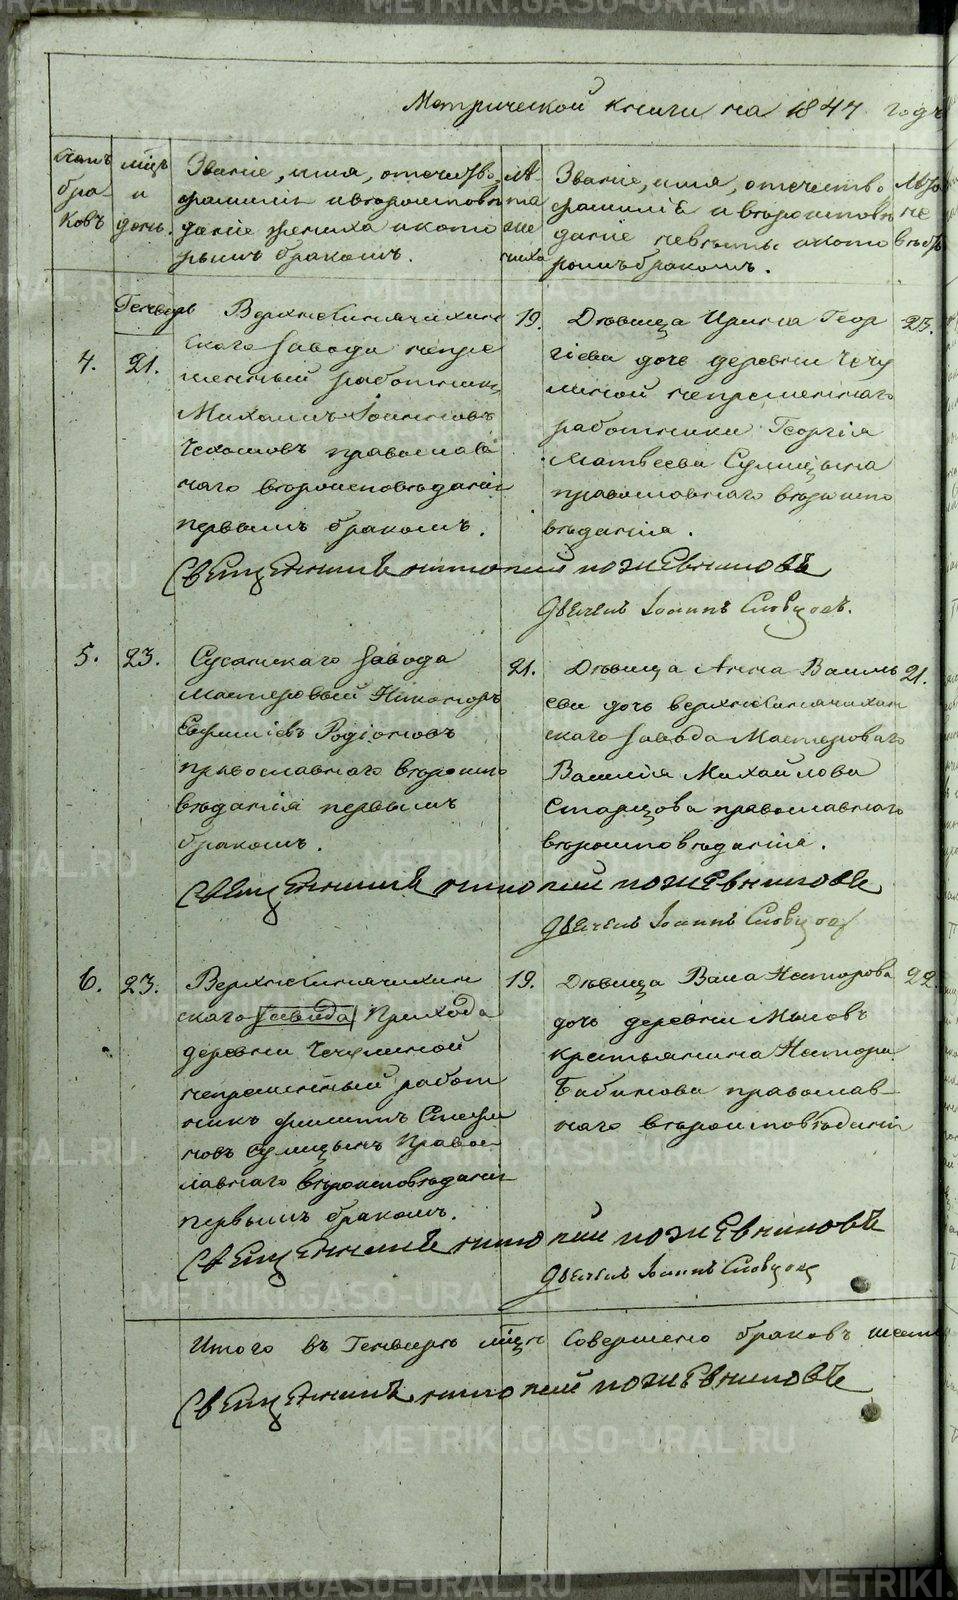 Метрической книги на 1847 годъ
бра-
ковъ
мцъ
и
день.
Званіе, имя, отечество,
фамилія и вероисповѣ
даніе жениха и кото
рымъ бракомъ.
лѣ-
та
же
ниха
Званіе, имя, отечество
фамилія и вероисповѣ
даніе невѣсты и кото
рымъ бракомъ.
Лѣта
не
вѣсты
Генварь
4.
21.
Верхнесинячихин
скаго завода непре
менный работникъ
Михаилъ Іоанновъ
Чехомовъ православ
наго вероисповѣданія
первымъ бракомъ.
19.
Дѣвица Ирина Геор
гіева дочь деревни Чечу
линой непременнаго
работника Георгія
Матвѣева Сулицына
православнаго вероиспо
вѣданія.
23.
Священникъ Кожевниковъ
Дьячекъ Іоаннъ Словцовъ.
5.
23.
Сусанскаго завода
мастеровый Никаноръ
Евфиміевъ Родіоновъ
православнаго вероиспо
вѣданія первымъ
бракомъ.
21.
Дѣвица Анна Василь
ева дочь верхнесинячихин
скаго завода Мастероваго
Василія Михайлова
Старцова православнаго
вероисповѣданія.
21.
Священникъ Кожевниковъ
Дьячекъ Іоаннъ Словцовъ
6.
23.
Верхнесинячихин
скаго завода Прихода
деревни Чечулиной
непременный работ
никъ Филиппъ Стефа
новъ Сулицынъ Правос
лавнаго вероисповѣданія
первымъ бракомъ.
19.
Дѣвица Васа Нестерова
дочь деревни Мысовъ
крестьянина Нестора
Бабинова православ-
наго вероисповѣданія
22.
Священникъ Кожевниковъ
Дьячекъ Іоаннъ Словцовъ
Итого въ Генварѣ мцѣ Совершено браковъ шесть
Священникъ Кожевниковъ
METRIKI.GASO-URAL.RU